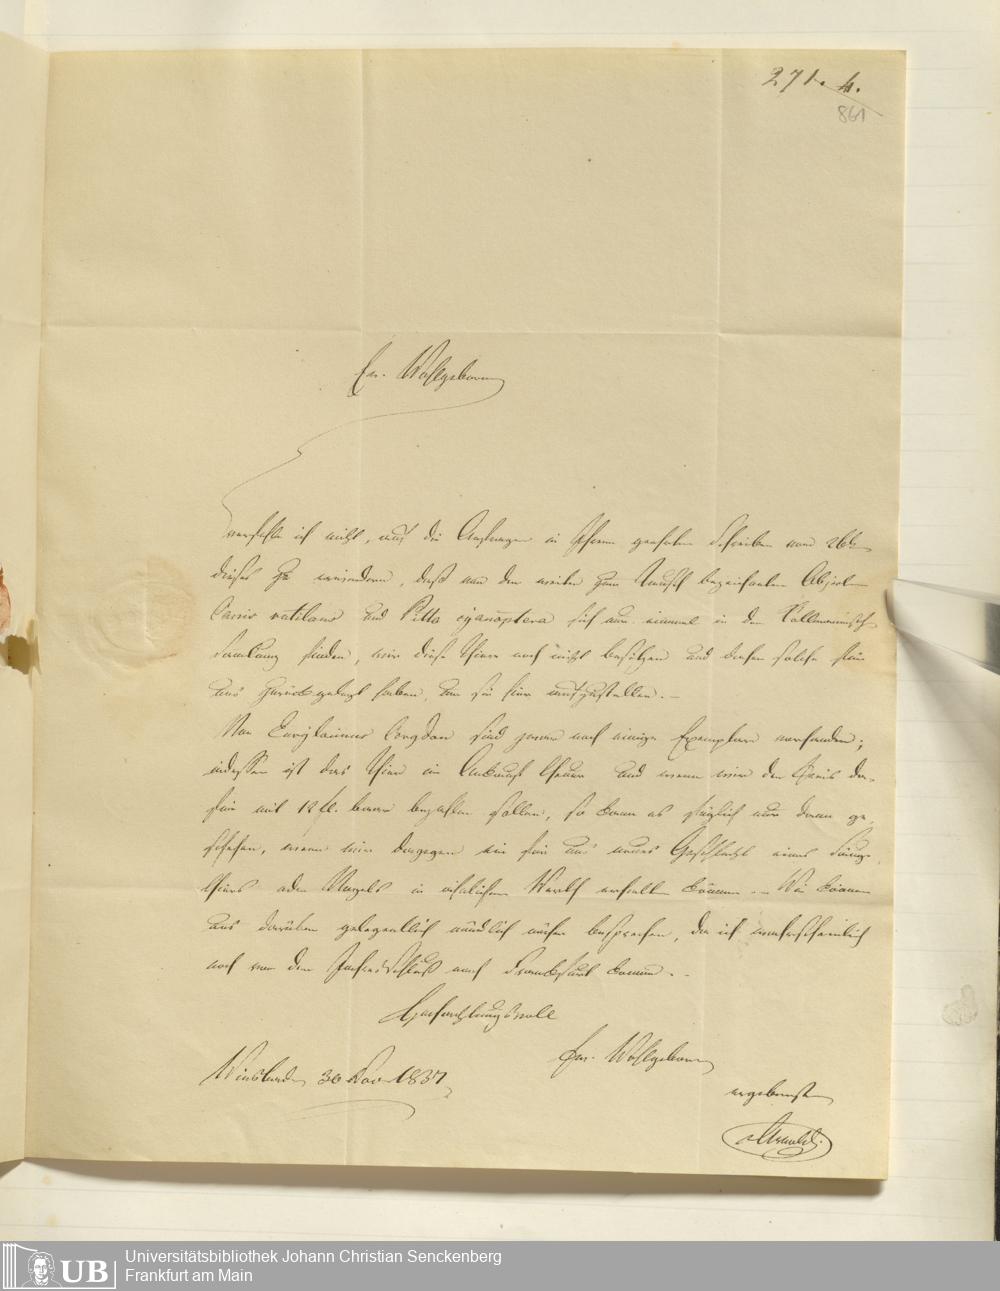 271. 4.
861
Ew. Wohlgeboren
verfehle ich nicht, auf die Anfragen in Ihrem geehrten Schreiben vom 26t
dieses zu erwiedern, daß von den weiter zum Tausch bezeichneten Objecten
Corvis rutilans und Pitta cyanoptera sich nur einmal in der
Samlung finden, wir diese Thiere noch nicht besitzen und daher solche für
uns zurückgelegt haben, um sie hier aufzustellen. –
Von Eurylaimus Corydon sind zwar noch einige Exemplare vorhanden;
indessen ist das Thier im Ankauf theuer und wenn wir den Preis da-
für mit 12 fl. baar bezahlen sollen, so kann es füglich nur dann ge-
schehen, wenn wir dagegen ein für uns neues Geschlecht eines Säuge-
thiers oder Vogels in ähnlichem Werth erhalten können. – Wir können
uns darüber gelegentlich mündlich näher besprechen, da ich wahrscheinlich
noch vor dem Jahresschluß nach Frankfurt komme. –
Hochachtungsvoll
Ew. Wohlgeboren
Wiesbaden 30 Nov 1837
ergebenster
Universitätsbibliothek Johann Christian Senckenberg
Frankfurt am Main
UB